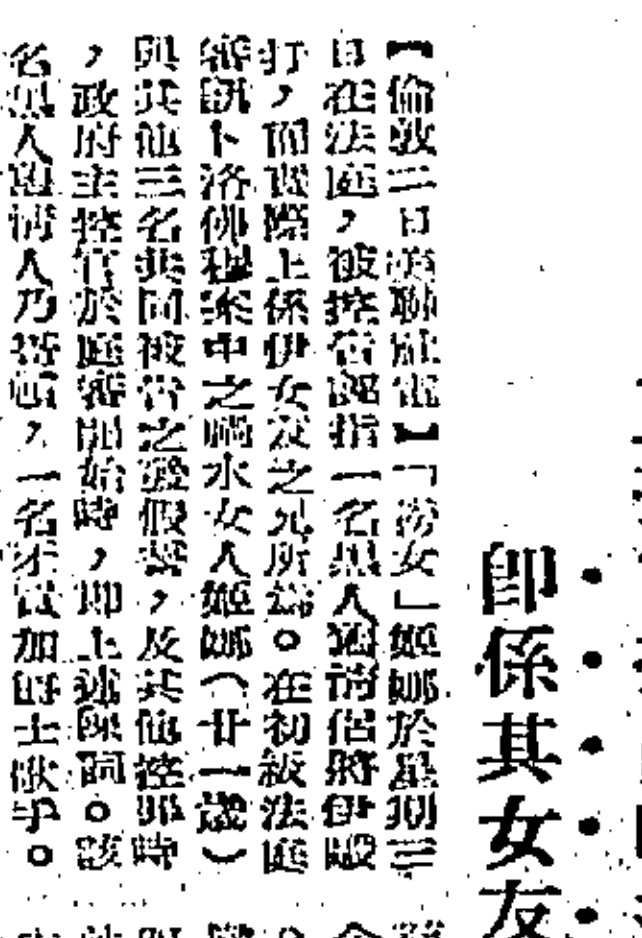 即係其女友
【倫敦二日美聯社電】「撈女」姬娜於星期三
日在法庭,被控告誣指一名黑人過情侶將伊毆
打,而實際上係伊女友之兄所為。在初級法庭
審訊卜洛佛穆案中之禍水女人姬娜(廿一歲)
與其他三名共同被告之發假誓,及其他控罪時
,政府主控官於庭審開始時,即上述陳詞。該
名黑人過情人乃哥頓,一名牙買加爵士歌手。